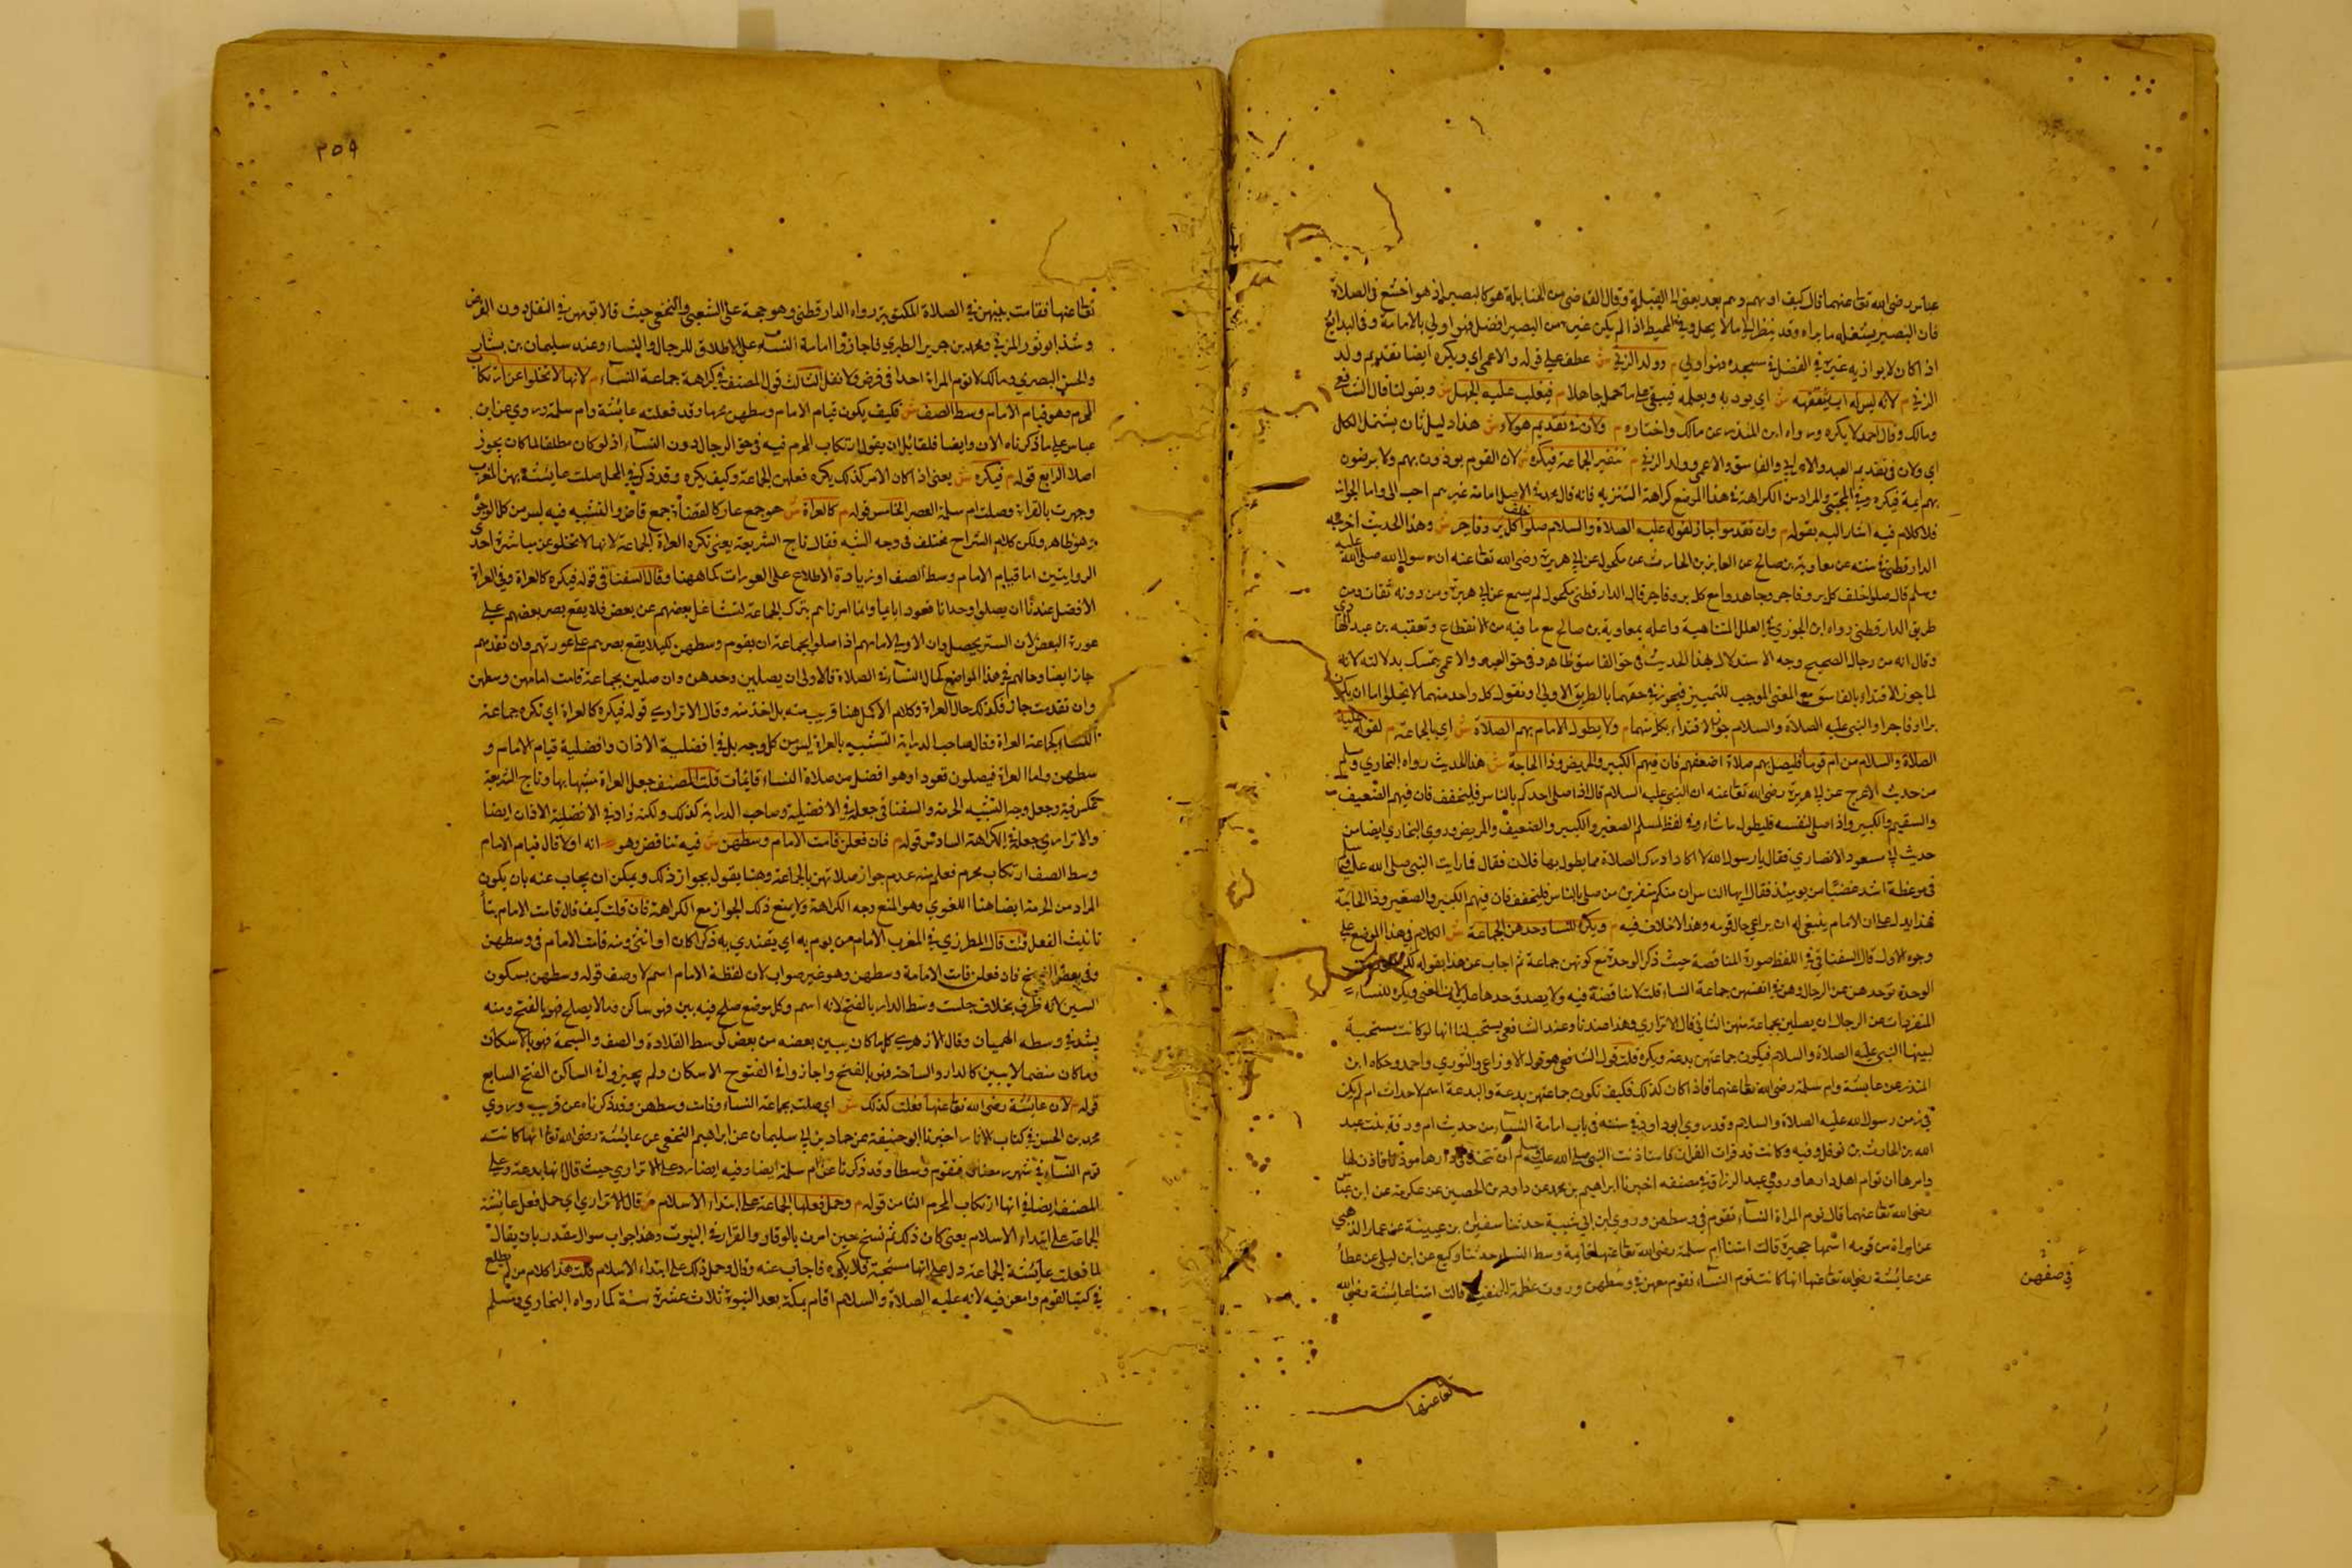 عباس رضى الله تعا عنهما قال كيف اومهم وهم يعدلونى الى القبلة وقال القاضى من الحنابلة هو كالبصير اذ هو اخشع فى الصلاة
فان البصير يشغله ما يراه وقد ينظر الى ما لا يحل وفى المحيط اذا لم يكن غيره من البصير افضل فهو اولى بالامامة وفى البدائع
اذا كان لا يوازيه غيره فى الفضل فى مسجده فهو اولى م وولد الزنى ش عطف على قوله والاعمى اى ويكره ايضا تقديم ولد
الزنى م لانه ليس له اب يثقفه ش اى يودبه ويعلمه فيبقى على ما حمل جاهلا م فيغلب عليه الجهل ش وبقولنا قال الشافعى
ومالك وقال احمد لا يكره ورواه ابن المنذر عن مالك واختاره م ولان فى تقديم هولاء ش هذا دليل ثان يشمل الكل
اى ولان فى تقديم العبد والاعرابى والفاسق والاعمى وولد الزنى م تنفير الجماعة فيكره ش لان القوم يوذون بهم ولا يرضون
بهم ايمة فيكره وفى المجتبى والمراد من الكراهة فى هذا الموضع كراهة التنزيه فانه قال محمد فى الاصل امامة غيرهم احب الى واما الجواز
فلا كلام فيه اشار اليه بقوله م وان تقدموا جاز لقوله عليه الصلاة والسلام صلوا خلف كل بر وفاجر ش وهذا الحديث اخرجه
الدارقطنى فى سننه عن معاوية بن صالح عن العلا بن الحارث عن مكحول عن ابى هريرة رضى الله تعا عنه ان رسول الله صلى الله عليه
وسلم قال صلوا خلف كل بر وفاجر وجاهدوا مع كل بر وفاجر قال الدارقطنى مكحول لم يسمع عن ابى هريرة ومن دونه ثقات ومن
طريق الدارقطنى رواه ابن الجوزى فى العلل المتناهية واعله بمعاوية بن صالح مع ما فيه من الانقطاع وتعقبه بن عبد الهادى
وقال انه من رجال الصحيح وجه الاستدلال بهذا الحديث فى حق الفاسق ظاهر وفى حق العبد والاعمى يتمسك بدلالته لانه
لما جوز الاقتداء بالفاسق مع المعنى الموجب للتمييز فيجوز فى حقهما بالطريق الاولى او نقول كل واحد منهما لا يخلوا اما ان يكون
برا او فاجرا والنبى عليه الصلاة والسلام جوز الاقتداء بكل منهما م ولا يطول الامام بهم الصلاة ش اى بالجماعة م لقوله عليه
الصلاة والسلام من ام قوما فليصل بهم صلاة اضعفهم فان فيهم الكبير والمريض وذا الحاجة ش هذا الحديث رواه البخارى ومسلم
من حديث الاعرج عن ابى هريرة رضى الله تعا عنه ان النبى عليه السلام قال اذا صلى احدكم بالناس فليخفف فان فيهم الضعيف
والسقيم والكبير واذا صلى لنفسه فليطول ما شاء وفى لفظ لمسلم الصغير والكبير والضعيف والمريض وروى البخارى ايضا من
حديث ابى مسعود الانصارى فقال يا رسول الله لا اكاد ادرك الصلاة مما يطول بها فلان فقال فما رايت النبى صلى الله عليه وسلم
فى موعظة اشد غضبا من يومئذ فقال ايها الناس ان منكم منفرين من صلى بالناس فليخفف فان فيهم الكبير والصغير وذا الحاجة
فهذا يدل على ان الامام ينبغى له ان يراعى حال قومه وهذا لا خلاف فيه م ويكره للنساء وحدهن الجماعة ش الكلام فى هذا الموضع على
وجوه الاول قال السفناقى فى اللفظ صورة المناقصة حيث ذكر الوحدة مع كونهن جماعة ثم اجاب عن هذا بقوله
الوحدة توحدهن عن الرجال وهن فى انفسهن جماعة النساء قلت لا مناقضة فيه ولا يصدق حدها لان المعنى ويكره للنساء
المنفردات عن الرجال ان يصلين بجماعة منهن الثانى قال الاترازى وهذا عندنا وعند الشافعى يستحب لنا انها لو كانت مستحبة
لبينها النبى عليه الصلاة والسلام فيكون جماعتهن بدعة ويكره قلت قول الشافعى هو قول الاوزاعى والثورى واحمد وحكاه ابن
المنذر عن عايشة وام سلمة رضى الله تعا عنهما فاذا كان كذلك فكيف تكون جماعتهن بدعة والبدعة اسم لاحداث امر لم يكن
فى زمن رسول الله عليه الصلاة والسلام وقد روى ابو داود فى سننه فى باب امامة النساء من حديث ام ورقة بنت عبد
الله بن الحارث بن نوفل وفيه وكانت قد قرات القران فاستاذنت النبى صلى الله عليه وسلم ان تتخذ فى دارها موذنا فاذن لها
وامرها ان توم اهل دارها وروى عبد الرزاق فى مصنفه اخبرنا ابراهيم بن محمد عن داود بن الحصين عن عكرمة عن ابن عباس
رضى الله تعا عنهما قال توم المراة النساء تقوم فى وسطهن وروى ابن ابى شيبة حدثنا سفيان بن عيينة عن عمار الدهبى
عن امراة من قومه اسمها حجيرة قالت امتنا ام سلمة رضى الله تعا عنها قايمة وسط النساء حدثنا وكيع عن ابن ابى ليلى عن عطا
عن عايشة رضى الله تعا عنها انها كانت توم النساء تقوم معهن فى وسطهن وروت قالت امتنا عايشة رضى الله
فى صفهن
تعا عنها
٢٥٩
تعا عنها فقامت بينهن فى الصلاة المكتوبة رواه الدارقطنى وهو حجة على الشعبى والنخعى حيث قالا تومهن فى النفل دون الفرض
وشذ ابو ثور المزنى ومحمد بن جرير الطبرى فاجازوا امامة النساء على الاطلاق للرجال والنساء وعند سليمان بن يسار
والحسن البصرى ومالك لا توم المراة احدا فى فرض ولا نفل الثالث قول المصنف فى كراهة جماعة النساء م لانها لا تخلوا عن ارتكاب
المحرم وهو قيام الامام وسط الصف ش فكيف يكون قيام الامام وسطهن محرما وقد فعلته عايشة وام سلمة وروى عن ابن
عباس على ما ذكرناه الان وايضا فلقائل ان يقول ارتكاب المحرم فيه فى حق الرجال دون النساء اذ لو كان مطلقا لما كان يجوز
اصلا الرابع قوله م فيكره ش يعنى اذا كان الامر كذلك يكره فعلهن الجماعة وكيف يكره وقد ذكر فى المحلى صلت عايشة بهن المغرب
وجهرت بالقراة وصلت ام سلمة العصر الخامس قوله م كالعراة ش هو جمع عار كالقضاة جمع قاض والتشبيه فيه ليس من كل الوجوه
وهو ظاهر ولكن كلام الشراح مختلف فى وجه الشبه فقال تاج الشريعة يعنى تكره العراة الجماعة لانها لا تخلو عن مباشرة احدى
الروايتين اما قيام الامام وسط الصف او زيادة الاطلاع على العورات كما ههنا وقال السفناقى فى قوله فيكره كالعراة وفى العراة
الافضل عندنا ان يصلوا وحدانا قعودا بايما وانما امرناهم بترك الجماعة لتشاغل بعضهم عن بعض فلا يقع بصر بعضهم على
عورة البعض لان الستر يحصل وان الاولى لامامهم اذا صلوا بجماعة ان يقوم وسطهن لكيلا يقع بصرهم على عورتهم وان تقدمهم
جاز ايضا وحالهم فى هذا الموضع كحال النساء فى الصلاة فالاولى ان يصلين وحدهن وان صلين بجماعة قامت امامهن وسطهن
وان تقدمت جاز فكذلك حال العراة وكلام الاكمل هنا قريب منه بل اخذ منه وقال الاترازى قوله فيكره كالعراة اى تكره جماعة
النساء كجماعة العراة وقال صاحب الدراية التشبيه بالعراة ليس من كل وجه بل فى افضلية الاذان وافضلية قيام الامام و
سطهن واما العراة فيصلون قعودا وهو افضل من صلاة النساء قايمات قلت المصنف جعل العراة مشبها بها وتاج الشريعة
عكس فيه وجعل وجه التشبيه الحرمة والسفناقى جعله فى الافضلية وصاحب الدراية كذلك ولكنه زاد فى الافضلية الاذان ايضا
والاترازى جعله فى الكراهة السادس قوله م فان فعلن قامت الامام وسطهن ش فيه تناقض وهو انه اولا قال قيام الامام
وسط الصف ارتكاب محرم فعلم منه عدم جواز صلاتهن بالجماعة وهنا يقول بجواز ذلك ويمكن ان يجاب عنه بان يكون
المراد من الحرمة ايضا هنا اللغوى وهو المنع وجه الكراهة ولا يمنع ذلك الجواز مع الكراهة فان قلت كيف قال قامت الامام بتا
تانيث الفعل قلت قال المطرزى فى المغرب الامام من يوم به اى يقتدى به ذكرا كان او انثى ومنه قامت الامام فى وسطهن
وفى بعض النسخ فان فعلن قامت الامامة وسطهن وهو غير صواب لان لفظة الامام اسم لا وصف قوله وسطهن بسكون
السين لانه ظرف بخلاف جلست وسط الدار بالفتح لانه اسم وكل موضع صلح فيه بين فهو ساكن وما لا يصلح فهو بالفتح ومنه
يشد فى وسطه الهميان وقال الازهرى كل ما كان يبين بعضه من بعض كوسط القلادة والصف والسبحة فهو بالاسكان
وما كان منضما لا يبين كالدار والساحة فهو بالفتح واجازوا فى المفتوح الاسكان ولم يجيزوا فى الساكن الفتح السابع
قوله م لان عايشة رضى الله تعا عنها فعلت كذلك ش اى صلت بجماعة النساء وقامت وسطهن وقد ذكرناه عن قريب وروى
محمد بن الحسن فى كتاب الاثار اخبرنا ابو حنيفة عن حماد بن ابى سليمان عن ابراهيم النخعى عن عايشة رضى الله تعا انها كانت
توم النساء فى شهر رمضان فتقوم وسطا وقد ذكرنا عن ام سلمة ايضا وفيه ايضا رد على الاترازى حيث قال انها بدعة وعلى
المصنف ايضا فى انها ارتكاب المحرم الثامن قوله م وحمل فعلها الجماعة على ابتداء الاسلام ش قال الاترازى اى حمل فعل عايشة
الجماعة على ابتداء الاسلام يعنى كان ذلك ثم نسخ حين امرن بالوقار والقرار فى البيوت وهذا جواب سوال مقدر بان يقال
لما فعلت عايشة الجماعة دل على انها مستحبة فلا يكره فاجاب عنه وقال وحمل ذلك على ابتداء الاسلام قلت هذا كلام من لم يطلع
فى كتب القوم وامعن فيه لانه عليه الصلاة والسلام اقام بمكة بعد النبوة ثلاث عشرة سنة كما رواه البخارى ومسلم